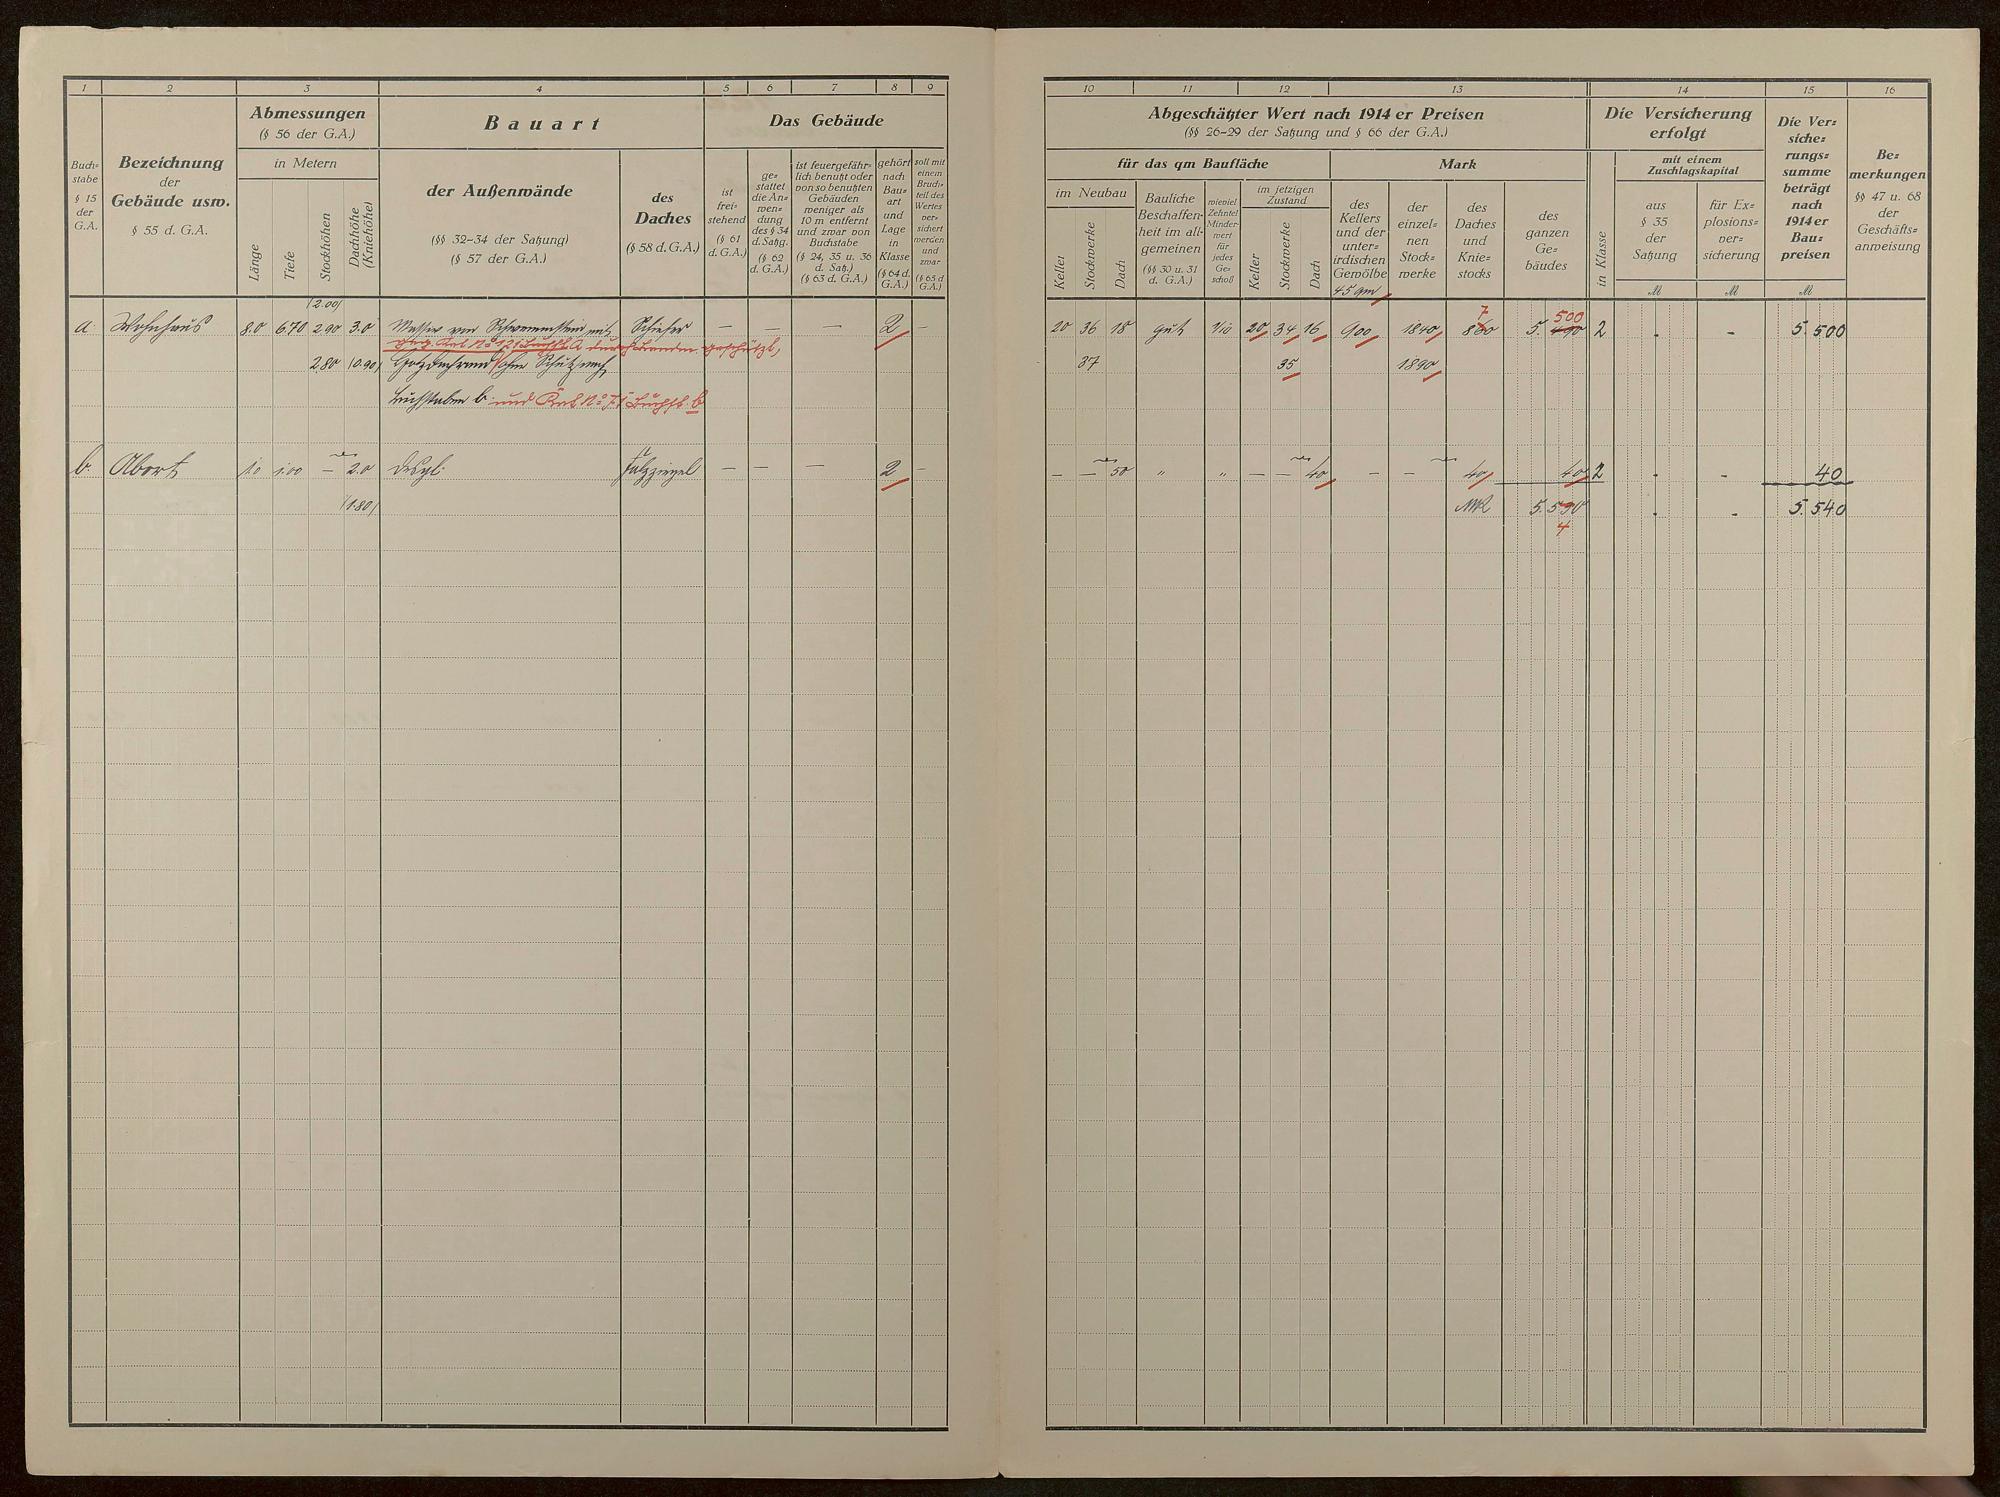 1 2 3 4 5 6 7 8 9
Buch=
stabe
§ 15
der
G.A.
Bezeichnung
der
Gebäude usw.
§ 55 d. G.A.
Abmessungen
(§ 56 der G.A.)
in Metern
Länge
Tiefe
Stockhöhen
Dachhöhe
(Kniehöhe)
Bauart
der Außenwände
(§§ 32–34 der Satzung)
(§ 57 der G.A.)
des
Daches
(§ 58 d. G.A.)
Das Gebäude
ist
frei=
stehend
(§ 61
d. G.A.)
ge=
stattet
die An=
wen=
dung
des § 34
d. Satzg.
(§ 62
d. G.A.)
ist feuergefähr=
lich benutzt oder
von so benutzten
Gebäuden
weniger als
10 m entfernt
und zwar von
Buchstabe
(§ 24, 35 u. 36
d. Satz.)
(§ 63 d. G.A.)
gehört
nach
Bau=
art
und
Lage
in
Klasse
(§ 64 d.
G.A.)
soll mit
einem
Bruch=
teil des
Wertes
ver=
sichert
werden
und
zwar
(§ 65 d.
G.A.)
(2.00)
a. Wohnhaus 8.0 6.70 2.90 3.0 Massiv von Schwemmstein mit Schiefer — — — 2 —
durch Brandm. geschützt,
2.80 (0.90) ohne Schutz nach
Buchstaben b. und Kat No 71 Buchst. b
b. Abort 1.0 1.00 — 2.0 desgl. Falzziegel — — — 2 —
(1.80)
10 11 12 13 14 15 16
Abgeschätzter Wert nach 1914 er Preisen
(§§ 26–29 der Satzung und § 66 der G.A.)
für das qm Baufläche
im Neubau
Keller
Stockwerke
Dach
Bauliche
Beschaffen=
heit im all=
gemeinen
(§§ 30 u. 31
d. G.A.)
wieviel
Zehntel
Minder=
wert
für
jedes
Ge=
schoß
im jetzigen
Zustand
Keller
Stockwerke
Dach
Mark
des
Kellers
und der
unter=
irdischen
Gewölbe
45 qm
der
einzel=
nen
Stock=
werke
des
Daches
und
Knie=
stocks
des
ganzen
Ge=
bäudes
Die Versicherung
erfolgt
in Klasse
mit einem
Zuschlagskapital
aus
§ 35
der
Satzung
M
für Ex=
plosions=
ver=
sicherung
M
Die Ver=
siche=
rungs=
summe
beträgt
nach
1914 er
Bau=
preisen
M
Be=
merkungen
§§ 47 u. 68
der
Geschäfts=
anweisung
7 500
20 36 18 gut 20 34 16 900 1840 860 5.490 2 - - 5.500
37 35 1890
— — 50 " " — — 40 — — 40 40 2 - - 40
5.590 - - 5.540
4